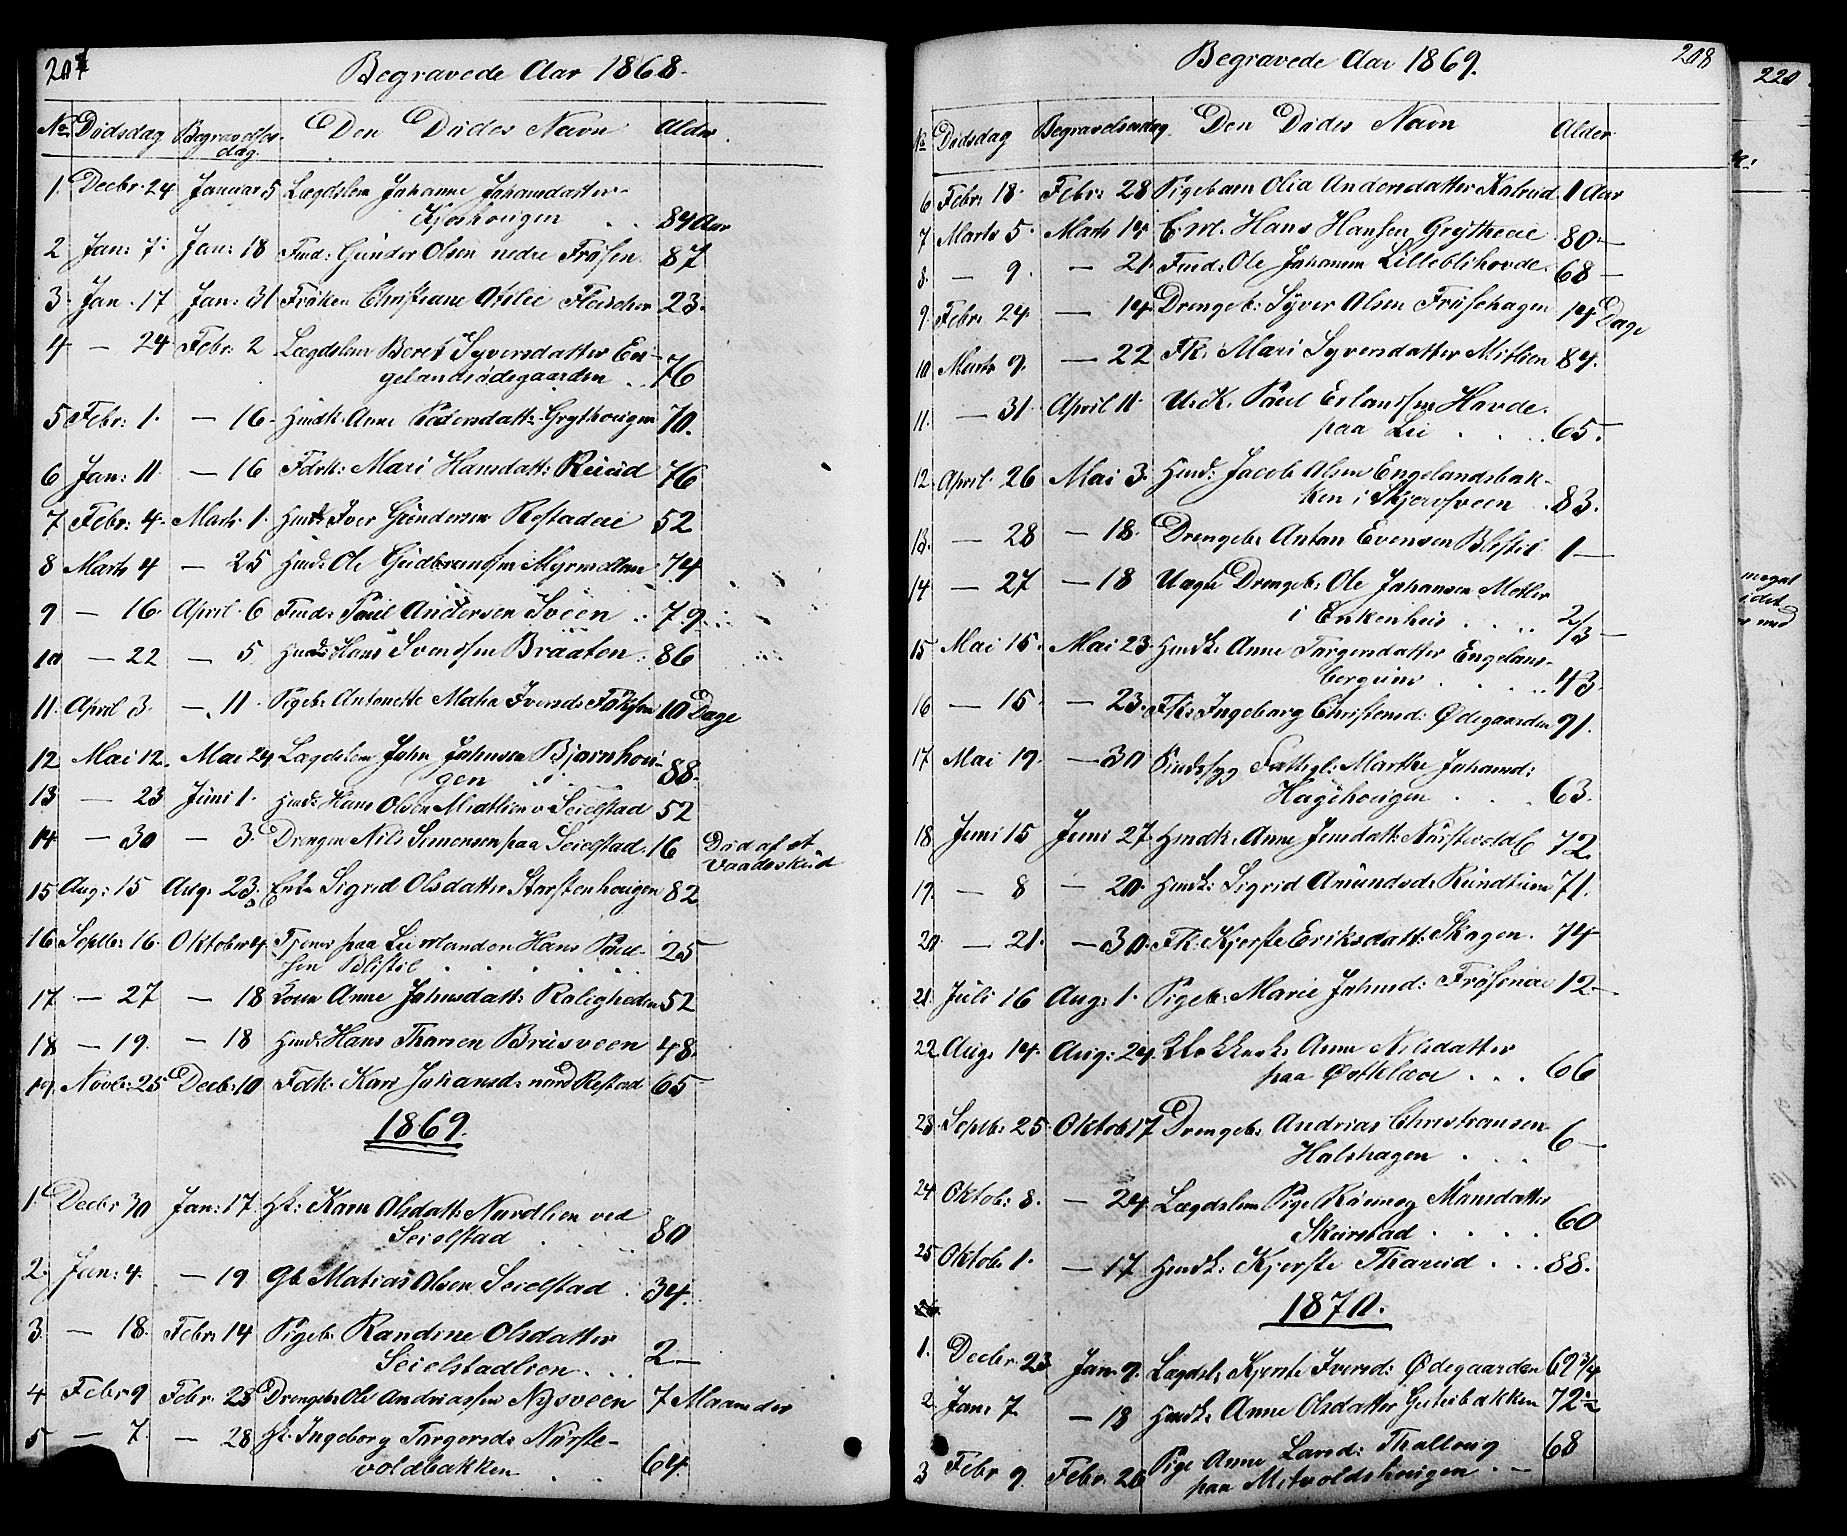 207
Begravede Aar 1868.
No Dødsdag Begravelses- Den Dødes Navn Alder
dag.
1. Decbr. 24 Januar 5 Lægdslem Johanne Johannsdatter
84 Aar
2 Jan: 7. Jan: 18 Fmd: Gunder Olsen nedre Frøsen 87
3. Jan. 17 Jan: 31 Frøken Christiane Otilie Fleischer 23.
4 — 24 Febr: 2 Lægdslem Beret Syversdatter En-
gelandsødegaarden . . 76
5 Febr: 1. — 16. Hmdk. Anne Pedersdatt: Grythougen 70.
6 Jan: 11. — 16 Fdrk: Mari Hansdatt: Ruud 76
7 Febr: 4. Marts 1. Hmd: Iver Gundersen 52
8 Marts 4 — 25 Hmd: Ole Gudbrandsen 74
9 — 16. April. 6 Fmd: Poul Andersen Sveen . . 79.
10 — 22 — 5. Hmd: Hans Svendsen Braaten . 86
11. April 3. — 11. Pigeb: Antonette Iversd: 10 Dage
12 Mai 12. Mai 24 Lægdslem John Johnsen Bjørnhou-
gen . . 88.
13 — 23 Juni 1. Hmd: Hans Olsen v Seielstad 52
14 — 30 — 3. Drengen Nils Simensen paa Seielstad. 16 Død af et
Vaadeskud
15 Aug: 15 Aug: 23. Enke Sigrid Olsdatter 82
16 Septbr: 16. Oktober 4. Tjener paa Hans Poul-
sen Blistil . . . . . 25
17 — 27 — 18 Anne Johnsdatt: Roligheden 52
18 — 19. — 18 Hmd: Hans Thorsen Brusveen 48.
19. Novbr: 25 Decbr: 10 Fdk: Kari Johansd: nord 65
1869.
1. Decbr 30 Jan: 17. Hk: Karn Olsdatt: Nordlien ved
Seielstad . . . 80
2. Jan: 4. — 19 Gb Matias Olsen Seielstad . 34.
3. — 18. Febr: 14 Pigeb: Randine Olsdatter
Seielstadlien . . . 2—
4 Febr 9 Febr. 28 Drengeb: Ole Andriassen Nysveen 7 Maaneder
5 — 7. — 28 Hk. Ingeborg Torgersd: Nørste-
voldbakken . . 64.
Begravede Aar 1869. 208
No Dødsdag Begravelsesdag Den Dødes Navn Alder
6 Febr: 18. Febr: 28 Pigebarn Olia Andersdatter 1 Aar
7 Marts 5. Marts 14. Hans Hansen 80—
8. — 9. — 21. Fmd: Ole Johannesen 68—
9. Febr: 24. — 14. Drengeb: Syver Olsen Frøsehagen 14 Dage
10 Marts 9. — 22 Fk. Mari Syversdatter 84.
11. — 31. April 11. Poul Erlandsen Hovde.
paa Lie . . . . 65.
12. April. 26 Mai 3. Hmd: Jacob Olsen Engelandsbak-
ken i . 83.
13. — 28 — 18. Drengeb: Anton Evensen Blistil 1—
14 — 27 — 18 Uægte Drengeb: Ole Johansen
i Enkenhus . . . . 2/3—
15 Mai 15. Mai 23. Hmdk: Anne Torgersdatter Engelans-
. . . . . 43.
16 — 15. — 23. Fk: Ingeborg Christensd: Ødegaarden 91.
17 Mai 19. — 30 Sindssyg Fattigl: Marthe Johansd:
Hagehougen . . . . 63.
18 Juni 15 Juni 27. Hmdk: Anne Jensdatt: 72.
19. — 8 — 20. Hmdk: Sigrid Amundsd: 71.
20 — 21. — 30. Fk: Kjerste Eriksdatt: Skogen. 74
21. Juli 16 Aug: 1. Pigeb: Marie Johnsd: 12—
22 Aug: 14. Aug: 24. Anne Nilsdatter
paa . . . 66
23. Septbr: 25 Oktob: 17 Drengeb: Andrias Christiansen
Halshagen . . . 6—
24 Oktob: 8. — 24. Lægdslem Pige Rønnog Monsdatter
. . . . . 60
25 Oktob: 1. — 17. Hmdk: Kjerste . . . 88.
1870.
1. Decbr. 23 Jan. 9. Lægdsl: Kjerste Iversd: Ødegaarden 69 3/4
2 Jan: 7. — 18 Hmdk: Anne Olsdatter 72 1/2
3 Febr 9. Febr: 20 Pige Anne Larsd: 68
paa . —
220